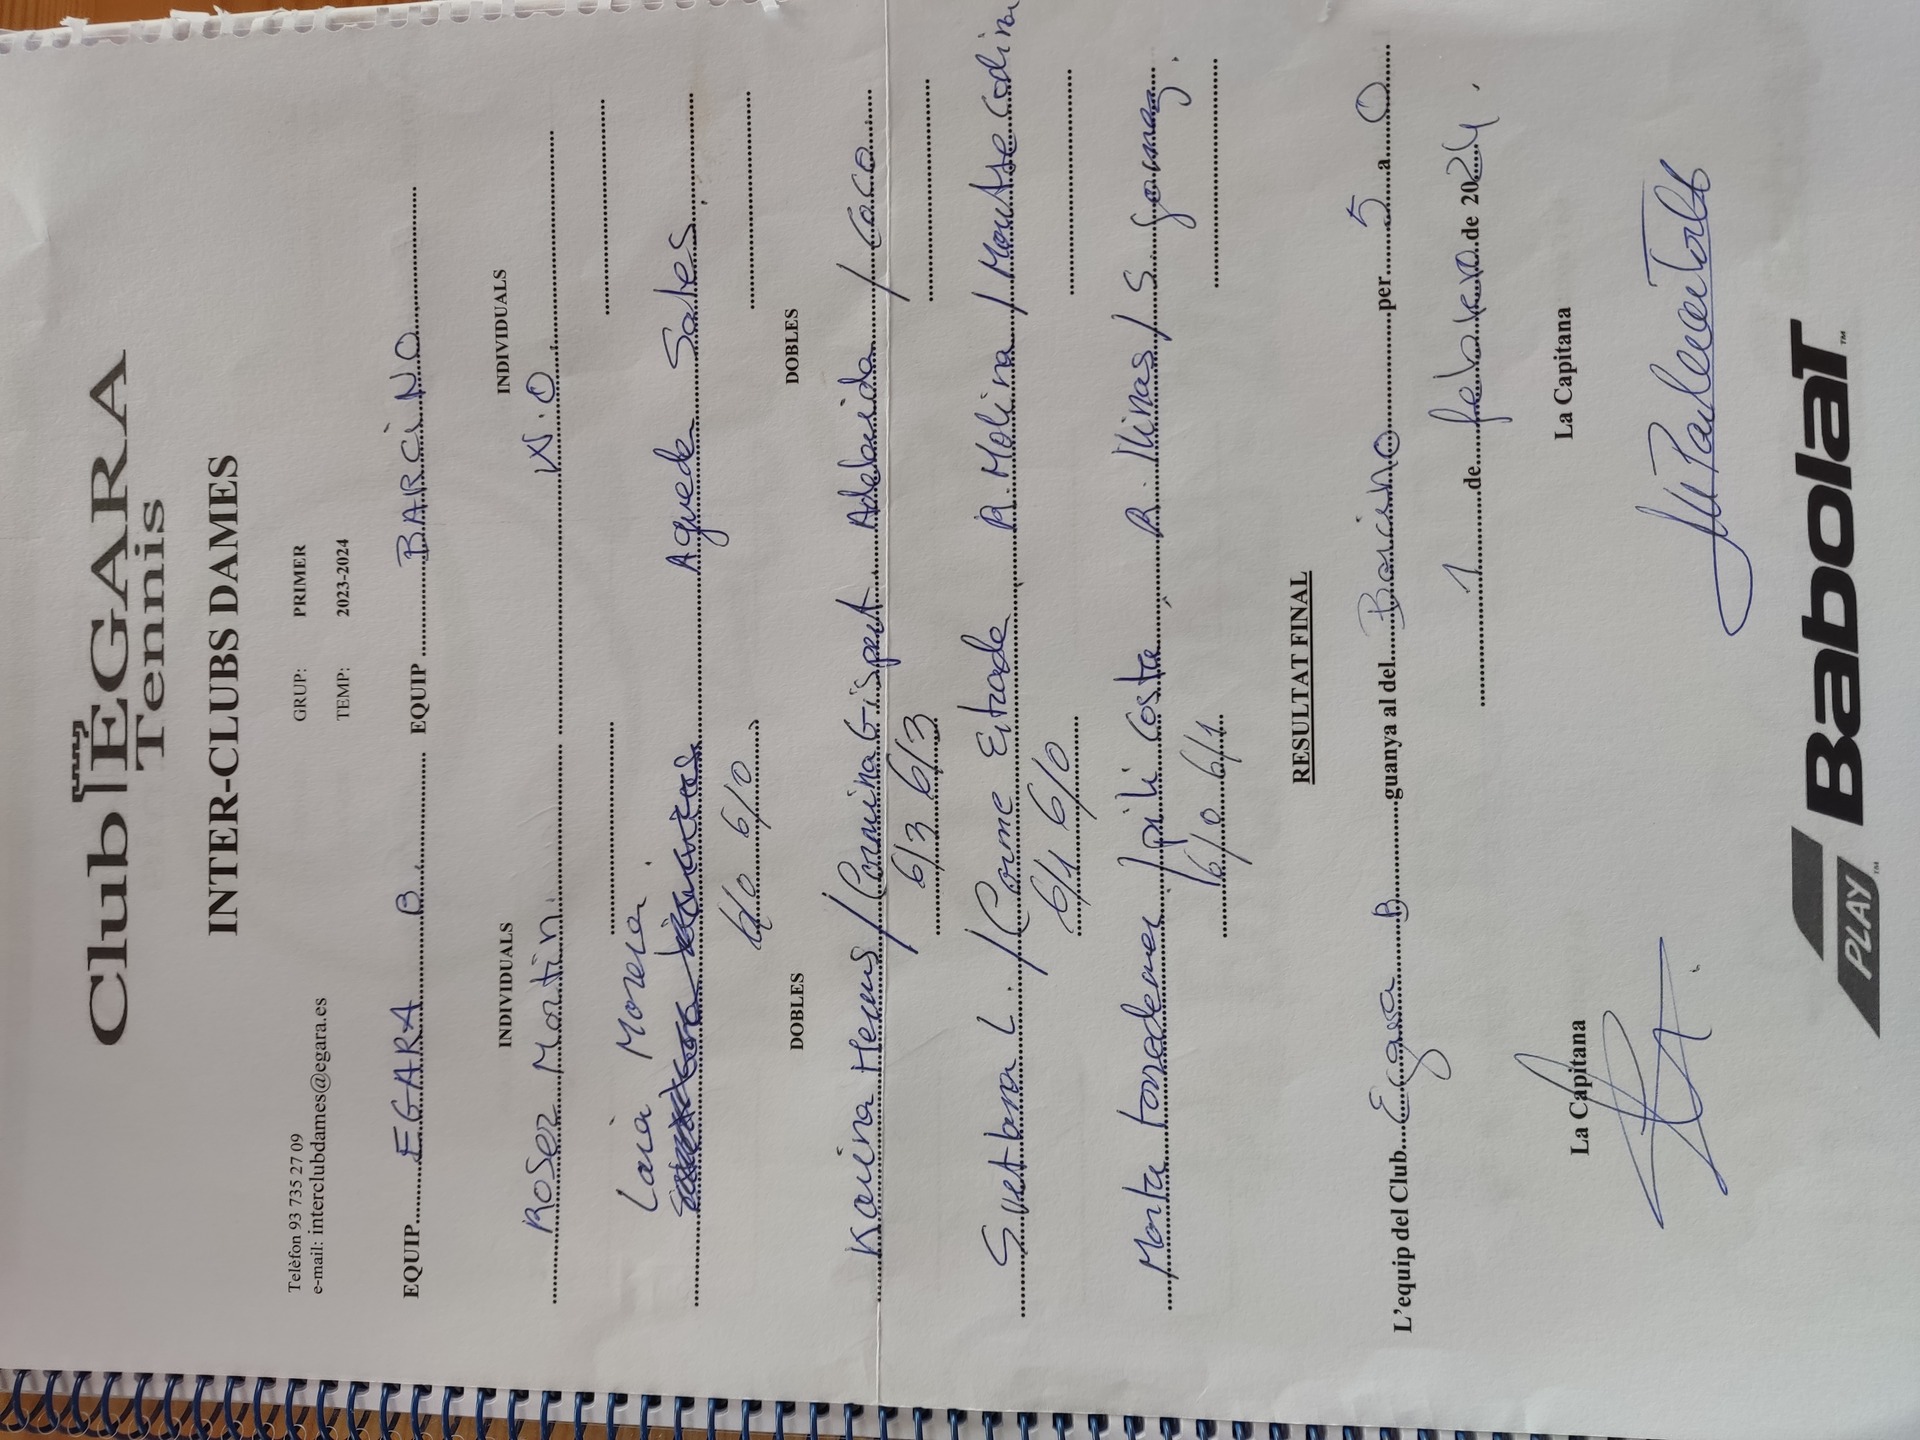 Club EGARA
Tennis
INTER-CLUBS DAMES
Telèfon 93 735 27 09 GRUP: PRIMER
e-mail: interclubdames@egara.es TEMP: 2023-2024
EQUIP EGARA B. EQUIP BARCINO
INDIVIDUALS INDIVIDUALS
Roser Martin W.O
Laia Morera.
Agueda Sales
6/0 6/0
DOBLES DOBLES
Karina Hems / Carmina Gispert Adelaida / Coco
6/3 6/3
Svetlana L. / Carme Estrade R. Molina / Montse Codina
6/1 6/0
Marta Torredemer / pili Costa R. Minas / S. Gomez.
6/0 6/1
RESULTAT FINAL
L'equip del Club Egara B guanya al del Barcino per 5 a 0
1 de febrero de 2024.
La Capitana La Capitana
PLAY Babolat